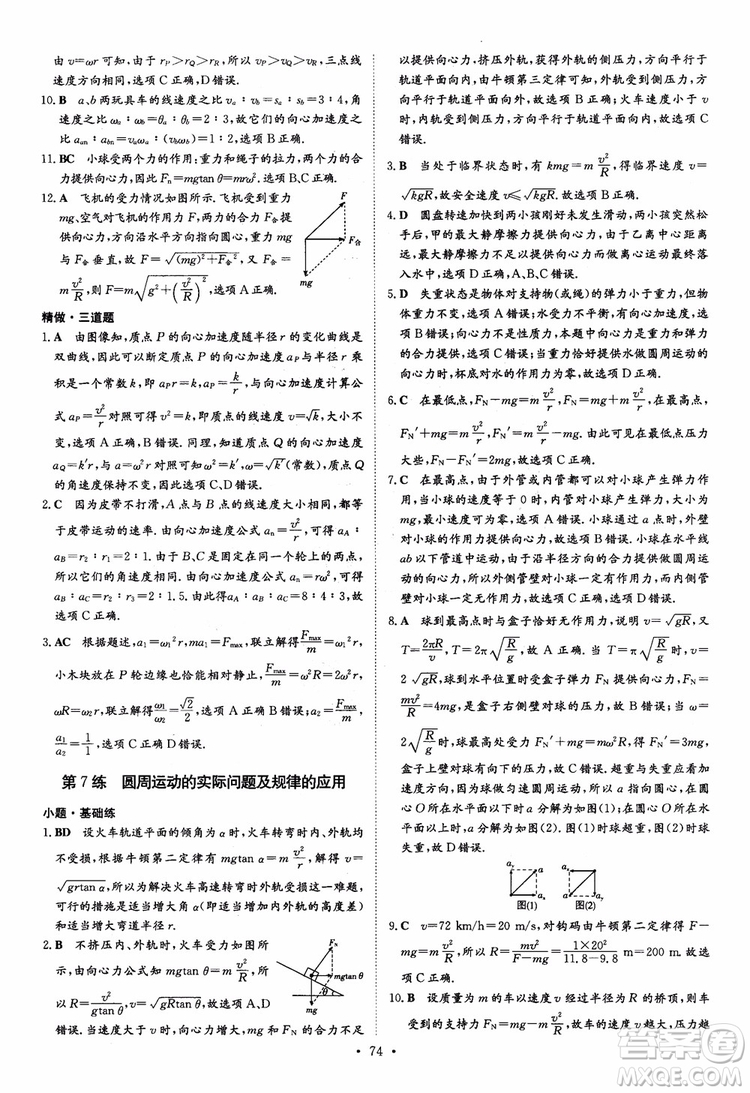 由 v=ωr 可知，由于 rP>rQ>rO，所以 vP>vQ>vO，三点线
速度方向相同，选项 C 正确，D 错误.
10. B a、b 两玩具车的线速度之比 va：vb=sa：sb=3：4，角
11. BC 小球受两个力的作用：重力和绳子的拉力，两个力的合
力提供向心力，因此 Fn=mgtan θ=mω²r，选项 B、C 正确.
12. A 飞机的受力情况如图所示. 飞机受到重力
mg、空气对飞机的作用力 F，两力的合力 F合
提供向心力，方向沿水平方向指向圆心，重力
mg 与 F合 垂直，故 F=√((mg)²+F合²)，F合=
m v²/R，则 F=m√(g²+(v²/R)²)，选项 A 正确.
F
F合
mg
精做·三道题
1. A 由图像知，质点 P 的向心加速度随半径 r 的变化曲线是
双曲线，因此可以判定质点 P 的向心加速度 aP 与半径 r 的乘
积是一个常数 k，即 aPr=k，aP=k/r，与向心加速度计算公
式 aP=v²/r 对照可得 v²=k，即质点 P 的线速度 v=√k，大小不
变，选项 A 正确，B 错误. 同理，知道质点 Q 的向心加速度
aQ=k′r，与 a=ω²r 对照可知 ω²=k′，ω=√k′(常数)，质点 Q
的角速度保持不变，因此选项 C、D 错误.
2. C 因为皮带不打滑，A 点与 B 点的线速度大小相同，都等
于皮带运动的速率. 由向心加速度公式 an=v²/r，可得 aA：
aB=r2：r1=2：1. 由于 B、C 是固定在同一轮上的两点，
所以它们的角速度相同. 由向心加速度公式 an=rω²，可得
aB：aC=r2：rC=2：1.5. 由此得 aA：aB：aC=8：4：3，
故选项 C 正确.
3. AC 根据题述，a1=ω1²r，ma1=Fmax，联立解得 a1=Fmax/m，
小木块放在 P 轮边缘也恰能相对静止，Fmax/m=ω²R=2ω²r，
ωR=ω2r，联立解得 ω1/ω2=√2/2，选项 A 正确，B 错误；a2=Fmax/m，
a1/a2=1/1，选项 C 正确，D 错误.
第 7 练 圆周运动的实际问题及规律的应用
小题·基础练
1. BD 设火车轨道平面的倾角为 α 时，火车转弯时内、外轨均
不受损，根据牛顿第二定律有 mgtan α=m v²/r，解得 v=
√(grtan α)，所以为解决火车高速转弯时外轨受损这一难题，
可行的措施是适当增大倾角 α（即适当增加内外轨的高度差）
和适当增大弯道半径 r.
2. B 不挤压内、外轨时，火车受力如图所
示，由向心力公式知 mgtan θ=m v²/R，所
以 R=v²/(gtan θ)，v=√(gRtan θ)，故选项 A、D
错误. 当火车速度大于 v 时，mg 和 FN 的合力不足
FN
mgtan θ
θ
mg
以提供向心力，挤压外轨，获得外轨的侧压力，方向平行于
轨道平面向内，由牛顿第三定律可知，外轨受到侧压力，方
向平行于轨道平面向外，故选项 B 正确；火车速度小于 v
时，内轨受到挤压，方向平行于轨道平面向内，故选项 C
错误.
3. B 当处于临界状态时，有 kmg=m v²/R，得临界速度 v=
√(kgR)，故安全速度 v≤√(kgR)，故选项 B 正确.
4. D 圆盘转速加快到两小孩刚好未发生滑动，两小孩突然松
手后，甲的最大静摩擦力可提供向心力，由于乙离中心距
离远，最大静摩擦力不足以提供向心力而做离心运动最终落
入水中，选项 D 正确，A、B、C 错误.
5. D 失重状态是物体对支持物(或绳)的弹力变小，但物体的
重力不变，选项 A 错误；水受力不平衡，有向心力，选项 B 错
误；向心力不是性质力，本题中向心力是由重力和弹力
的合力提供，选项 C 错误；当重力恰好提供水做圆周运动的
向心力时，杯底对水的作用力为零，选项 D 正确.
6. C 在最低点，FN-mg=m v²/r，所以 FN=mg+m v²/r，在最高点，
FN′+mg=m v²/r，所以 FN′=m v²/r-mg，所以在最低点压力
大些，FN-FN′=2mg. 故选项 C 正确.
7. C 在最高点，由于外管或内管都可以对小球产生弹力作
用，当小球的速度等于 0 时，内管对小球产生弹力，大小为
mg，故最小速度为 0，故选项 A、B 错误. 小球在水平线
ab 以下管道运动，由于沿半径方向的合力提供做圆周运动
的向心力，所以外侧管壁对小球一定有作用力，而内侧管
壁对小球一定无作用力，故选项 C 正确，D 错误.
8. A 球与盒子恰好无作用力，说明此时 v=√(gR). 又
T=2πR/v，T=2π√(R/g)，故 A 正确. 当 T=π√(R/g) 时，v=
2√(gR)，球与水平位置时受盒子弹力，提供向心力，F=
mv²/R=4mg，是盒子右侧壁对球的力，故 B 错误. 当 ω=
向心力，球与盒子上壁有力 FN′，由 FN′+mg=m v²/R，得 FN′=
3mg，是盒子上壁对球向下的力，故 C 错误. 盒子从最低点
向最高点运动的过程中，球处于超重状态，当球处于和圆
心 O 等高之下时 a 分解为如图(1). 当球处于和圆
心 O 所在水平线之上时 a 分解为如图(2). 图(1)时球超重，图(2)时球
失重. 故 D 错误.
图(1)
图(2)
9. C v=72 km/h=20 m/s，对钩码由牛顿第二定律得 F-
mg=m v²/R，所以 R=mv²/(F-mg)=1×20²/(11.8-9.8) m=200 m. 故选
项 C 正确.
10. B 设质量为 m 的车以速度 v 经过半径为 R 的桥顶，则车
受到的支持力 FN=mg-m v²/R，故车的速度 v 越大，压力越
74
答案圈